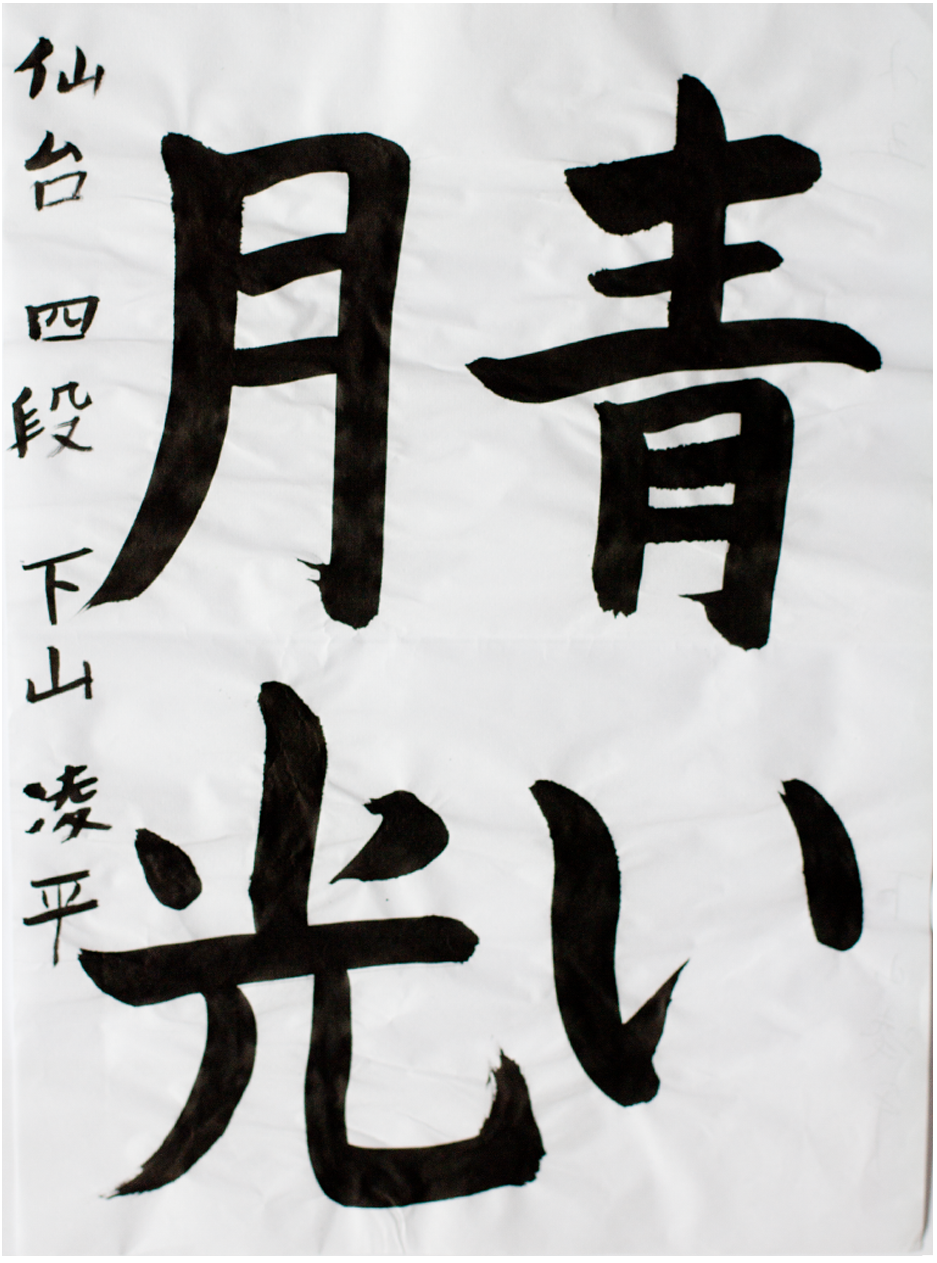 青い
月光
仙台 四段 下山 凌平